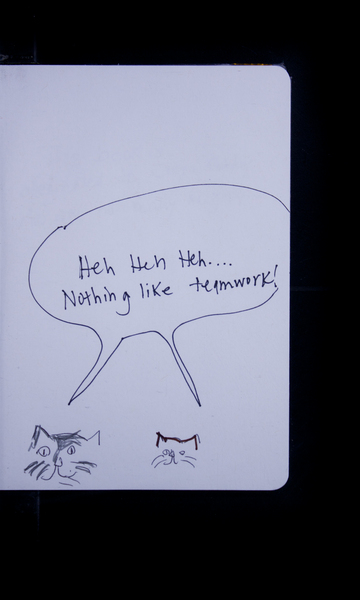 Heh Heh Heh....
Nothing like teamwork!